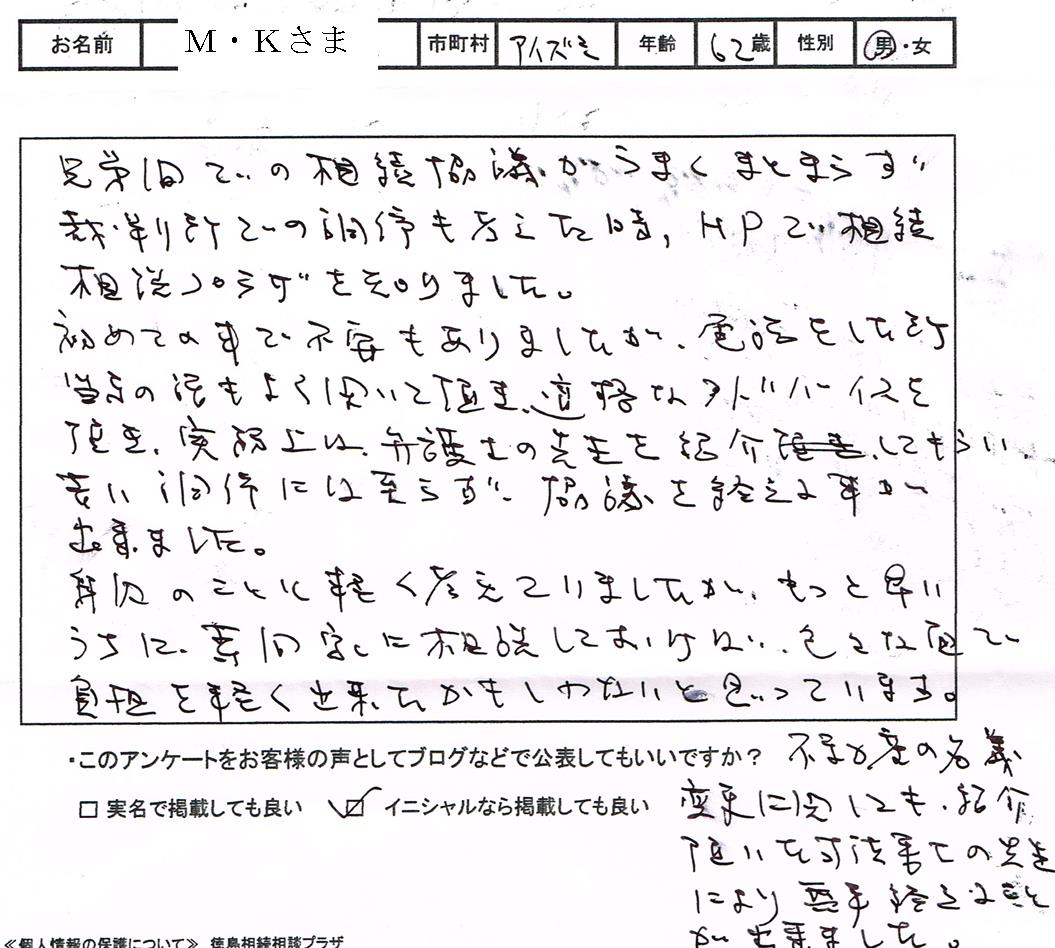 お名前 M・Kさま 市町村 アイズミ 年齢 62歳 性別 男・女
兄弟間での相続協議がうまくまとまらず
裁判所での調停も考えた時、HPで相続
相談プラザを知りました。
初めての事で不安もありましたが、電話をした所
当方の話もよく聞いて頂き、適格なアドバイスを
頂き、実務上は、弁護士の先生を紹介してもらい、
幸い調停には至らず、協議を終える事が
出来ました。
身内のことと軽く考えていましたが、もっと早い
うちに、専門家に相談しておけば、色々な面で
負担を軽く出来たかもしれないと思っています。
・このアンケートをお客様の声としてブログなどで公表してもいいですか?
□ 実名で掲載しても良い ☑ イニシャルなら掲載しても良い
不動産の名義
変更に関しても、紹介
頂いた司法書士の先生
により無事終える事
が出来ました。
≪個人情報の保護について≫ 徳島相続相談プラザ